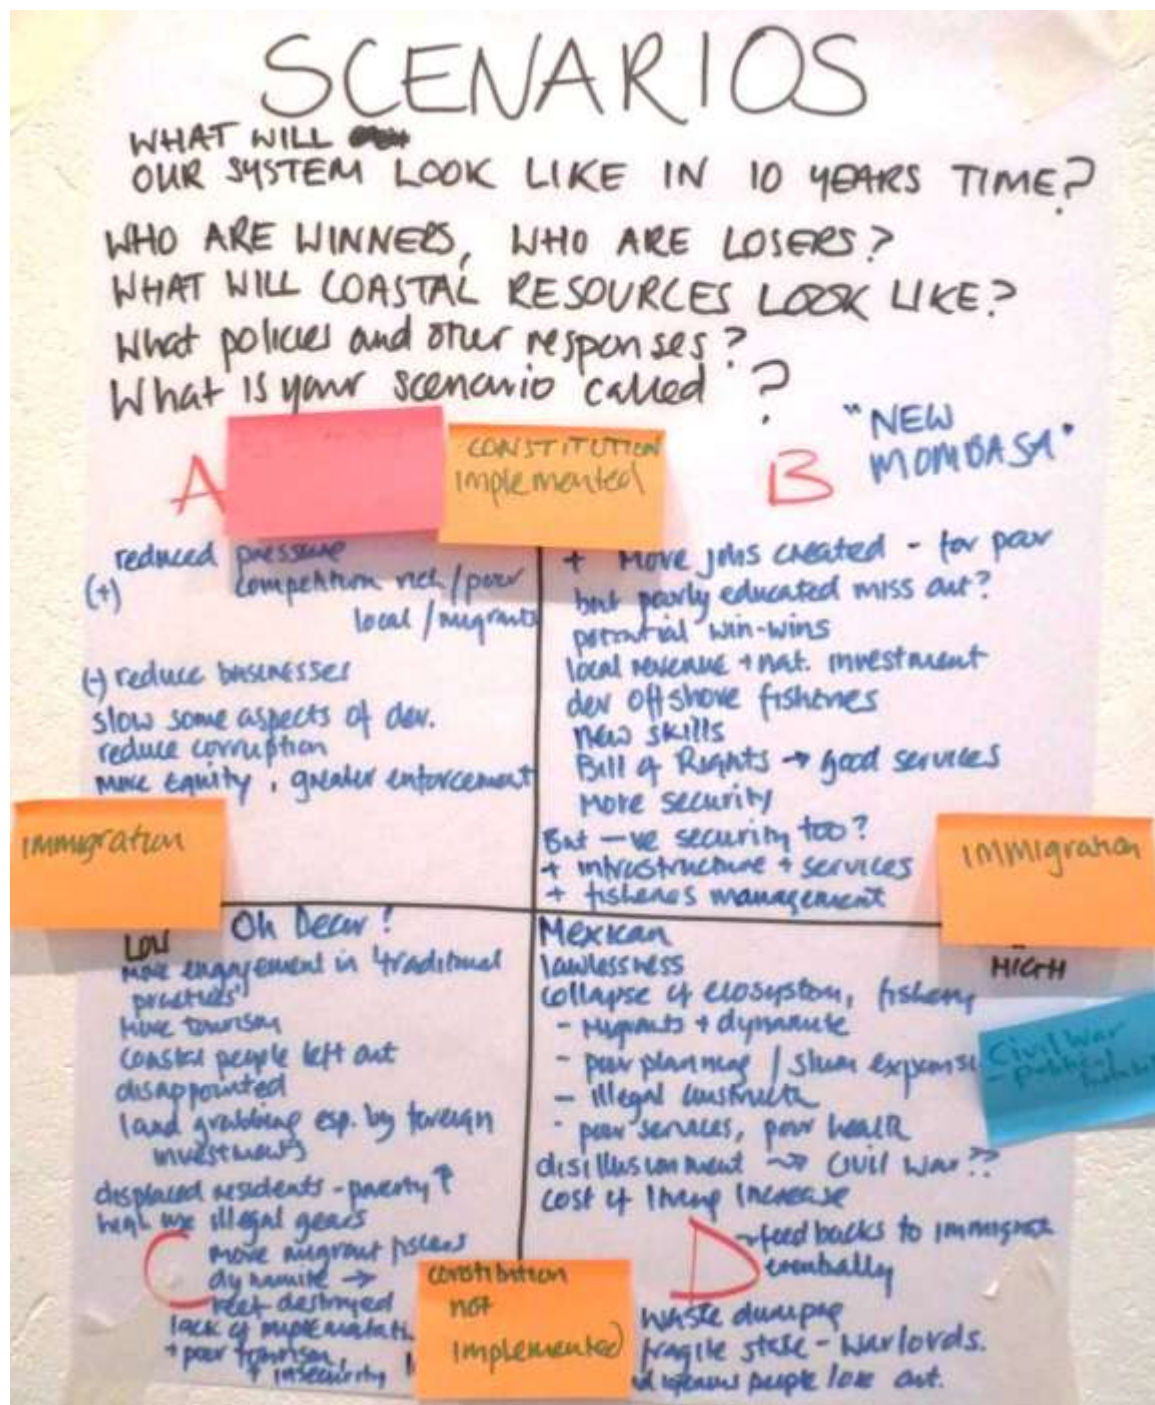 SCENARIOS
WHAT WILL
OUR SYSTEM LOOK LIKE IN 10 YEARS TIME?
WHO ARE WINNERS, WHO ARE LOSERS?
WHAT WILL COASTAL RESOURCES LOOK LIKE?
What policies and other responses?
What is your scenario called?
A
CONSTITUTION
implemented
reduced pressure
(+) competition rich/poor
local/migrants
(-) reduce businesses
slow some aspects of dev.
reduce corruption
more equity, greater enforcement
B
"NEW
MOMBASA"
+ More jobs created - for poor
but poorly educated miss out?
potential win-wins
local revenue + nat. investment
dev offshore fisheries
new skills
Bill of Rights → good services
More security
But -ve security too?
+ infrastructure + services
+ fisheries management
immigration
LOW
IMMIGRATION
HIGH
Oh Dear!
More engagement in 'traditional
practices'
More tourism
Coastal people left out
disappointed
land grabbing esp. by foreign
investments
displaced residents - poverty ↑
high use illegal gears
C
more migrant fishers
dynamite →
reef destroyed
lack of
+ poor tourism,
+ insecurity
constitution
not
implemented
Mexican
lawlessness
collapse of ecosystem, fishery
- Migrants + dynamite
- poor planning / slum
- illegal
- poor services, poor health
disillusionment → Civil War??
cost of living increase
D
→ feedbacks to
eventually
Waste dumping
fragile state - Warlords.
people lose out.
Civil War
- political